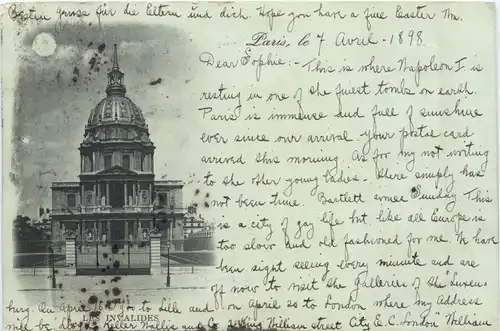 Besten grüsse für die Eltern und dich. Hope you have a fine Easter Mn.
Paris, le 7 Avril - 1898.
Dear Sophie:- This is where Napoleon I. is
resting in one of the finest tombs on earth.
Paris is immense and full of sunshine
ever since our arrival - your postal card
arrived this morning. As for my not writing
to the other young ladies - there simply has
not been time. Bartlett comes Sunday This
is a city of gay life but like all Europe is
too slow and old fashioned for me. We have
been sight seeing every minute and are
off now to visit the galleries of the "Luxem-
burg. On April 16 I go to Lille and on April 20 to London where my Address
will be Keller Wallis and Co. King William Street City E.C. London" William
LES INVALIDES